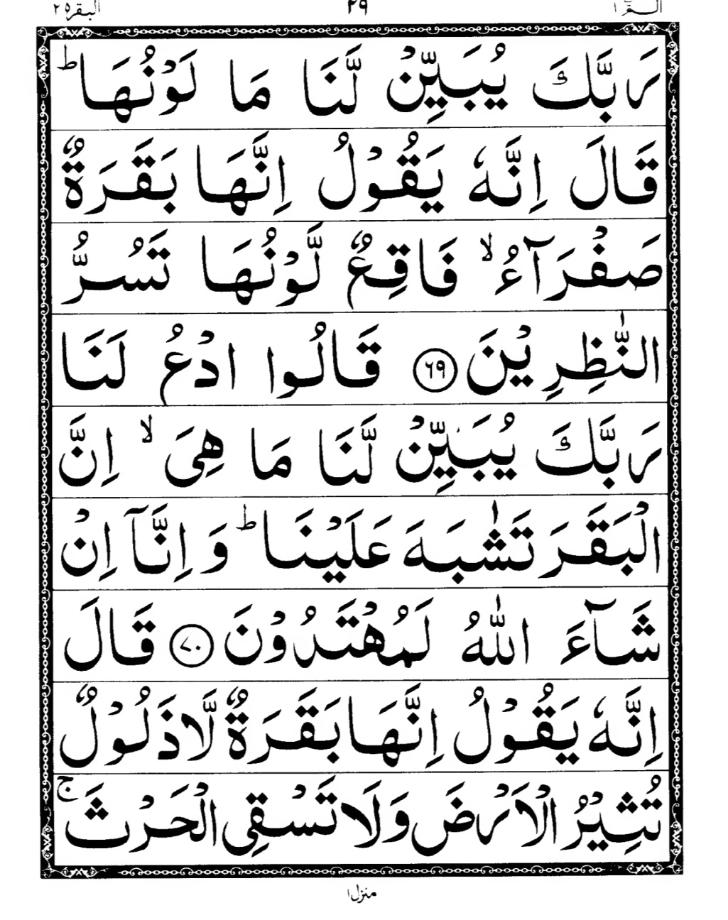 الٓمّٓ ۱ ۲۹ البقرة ۲
رَبَّكَ يُبَيِّنْ لَّنَا مَا لَوْنُهَا ؕ
قَالَ اِنَّهٗ يَقُوْلُ اِنَّهَا بَقَرَةٌ
صَفْرَآءُ ۙ فَاقِعٌ لَّوْنُهَا تَسُرُّ
النّٰظِرِيْنَ ۶۹ قَالُوا ادْعُ لَنَا
رَبَّكَ يُبَيِّنْ لَّنَا مَا هِیَ ۙ اِنَّ
الْبَقَرَ تَشٰبَهَ عَلَيْنَا ؕ وَ اِنَّآ اِنْ
شَآءَ اللّٰهُ لَمُهْتَدُوْنَ ۷۰ قَالَ
اِنَّهٗ يَقُوْلُ اِنَّهَا بَقَرَةٌ لَّا ذَلُوْلٌ
تُثِيْرُ الْاَرْضَ وَلَا تَسْقِی الْحَرْثَ ۚ
منزل ۱